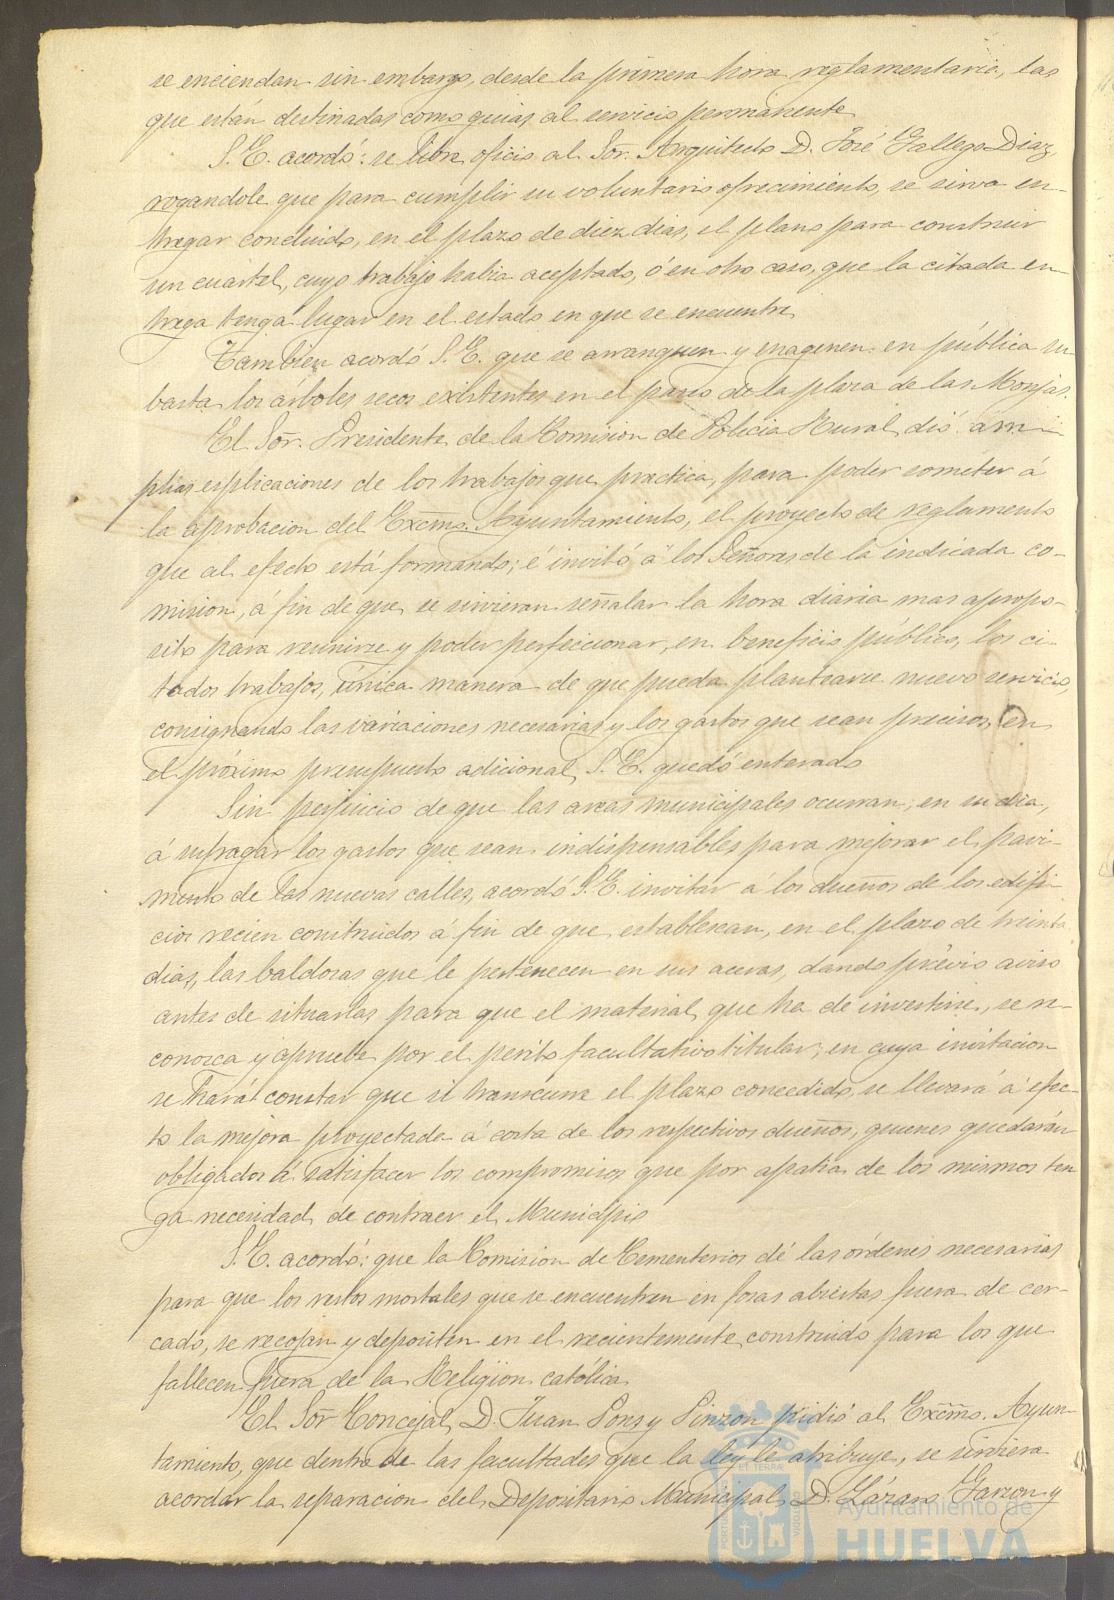 se enciendan sin embargo, desde la primera hora reglamentaria, las
que están destinadas como guias al servicio permanente
S. E. acordó: se libre oficio al Sor. Arquitecto D. José Gallego Diaz,
rogandole que para cumplir su voluntario ofrecimiento, se sirva en-
tregar concluido, en el plazo de diez dias, el plano para construir
un cuartel, cuyo trabajo habia aceptado, ó en otro caso, que la citada en-
trega tenga lugar en el estado en que se encuentre
Tambien acordó S. E. que se arranquen y enagenen en pública su-
basta los árboles secos existentes en el paseo de la plaza de las Monjas.
El Sor. Presidente de la Comision de Policia Rural, dió am-
plias esplicaciones de los trabajos que practica, para poder someter á
la aprobacion del Excmo. Ayuntamiento, el proyecto de reglamento
que al efecto está formando; é invitó á los Señores de la indicada co-
mision, á fin de que se sirvieran señalar la hora diaria mas apropo-
sito para reunirse y poder perfeccionar, en beneficio público, los ci-
tados trabajos, única manera de que pueda plantearse nuevo servicio,
consignando las variaciones necesarias y los gastos que sean precisos, en
el próximo presupuesto adicional, S. E. quedó enterado
Sin perjuicio de que las arcas municipales ocurran, en su dia,
á sufragar los gastos que sean indispensables para mejorar el pavi-
mento de las nuevas calles, acordó S. E. invitar á los dueños de los edifi-
cios recien construidos á fin de que establezcan, en el plazo de treinta
dias, las baldosas que le pertenecen en sus aceras, dando prévio aviso
antes de situarlas, para que el material, que ha de invertirse, se re-
conozca y apruebe por el perito facultativo titular; en cuya invitacion
se hará constar que si transcurre el plazo concedido, se llevará á efec-
to la mejora proyectada á costa de los respectivos dueños, quienes quedarán
obligados á satisfacer los compromisos que por apatia de los mismos ten
ga necesidad de contraer el Municipio
S. E. acordó: que la Comision de Cementerios dé las órdenes necesarias
para que los restos mortales que se encuentren en fosas abiertas fuera de cer-
cado, se recojan y depositen en el recientemente construido para los que
fallecen fuera de la Religion católica
El Sor Concejal, D. Juan Pons y Pinzon pidió al Excmo. Ayun-
tamiento, que dentro de las facultades que la ley le atribuye, se sirviera
acordar la separacion del Depositario Municipal, D. Lázaro Garzon y
Ayuntamiento de
HUELVA